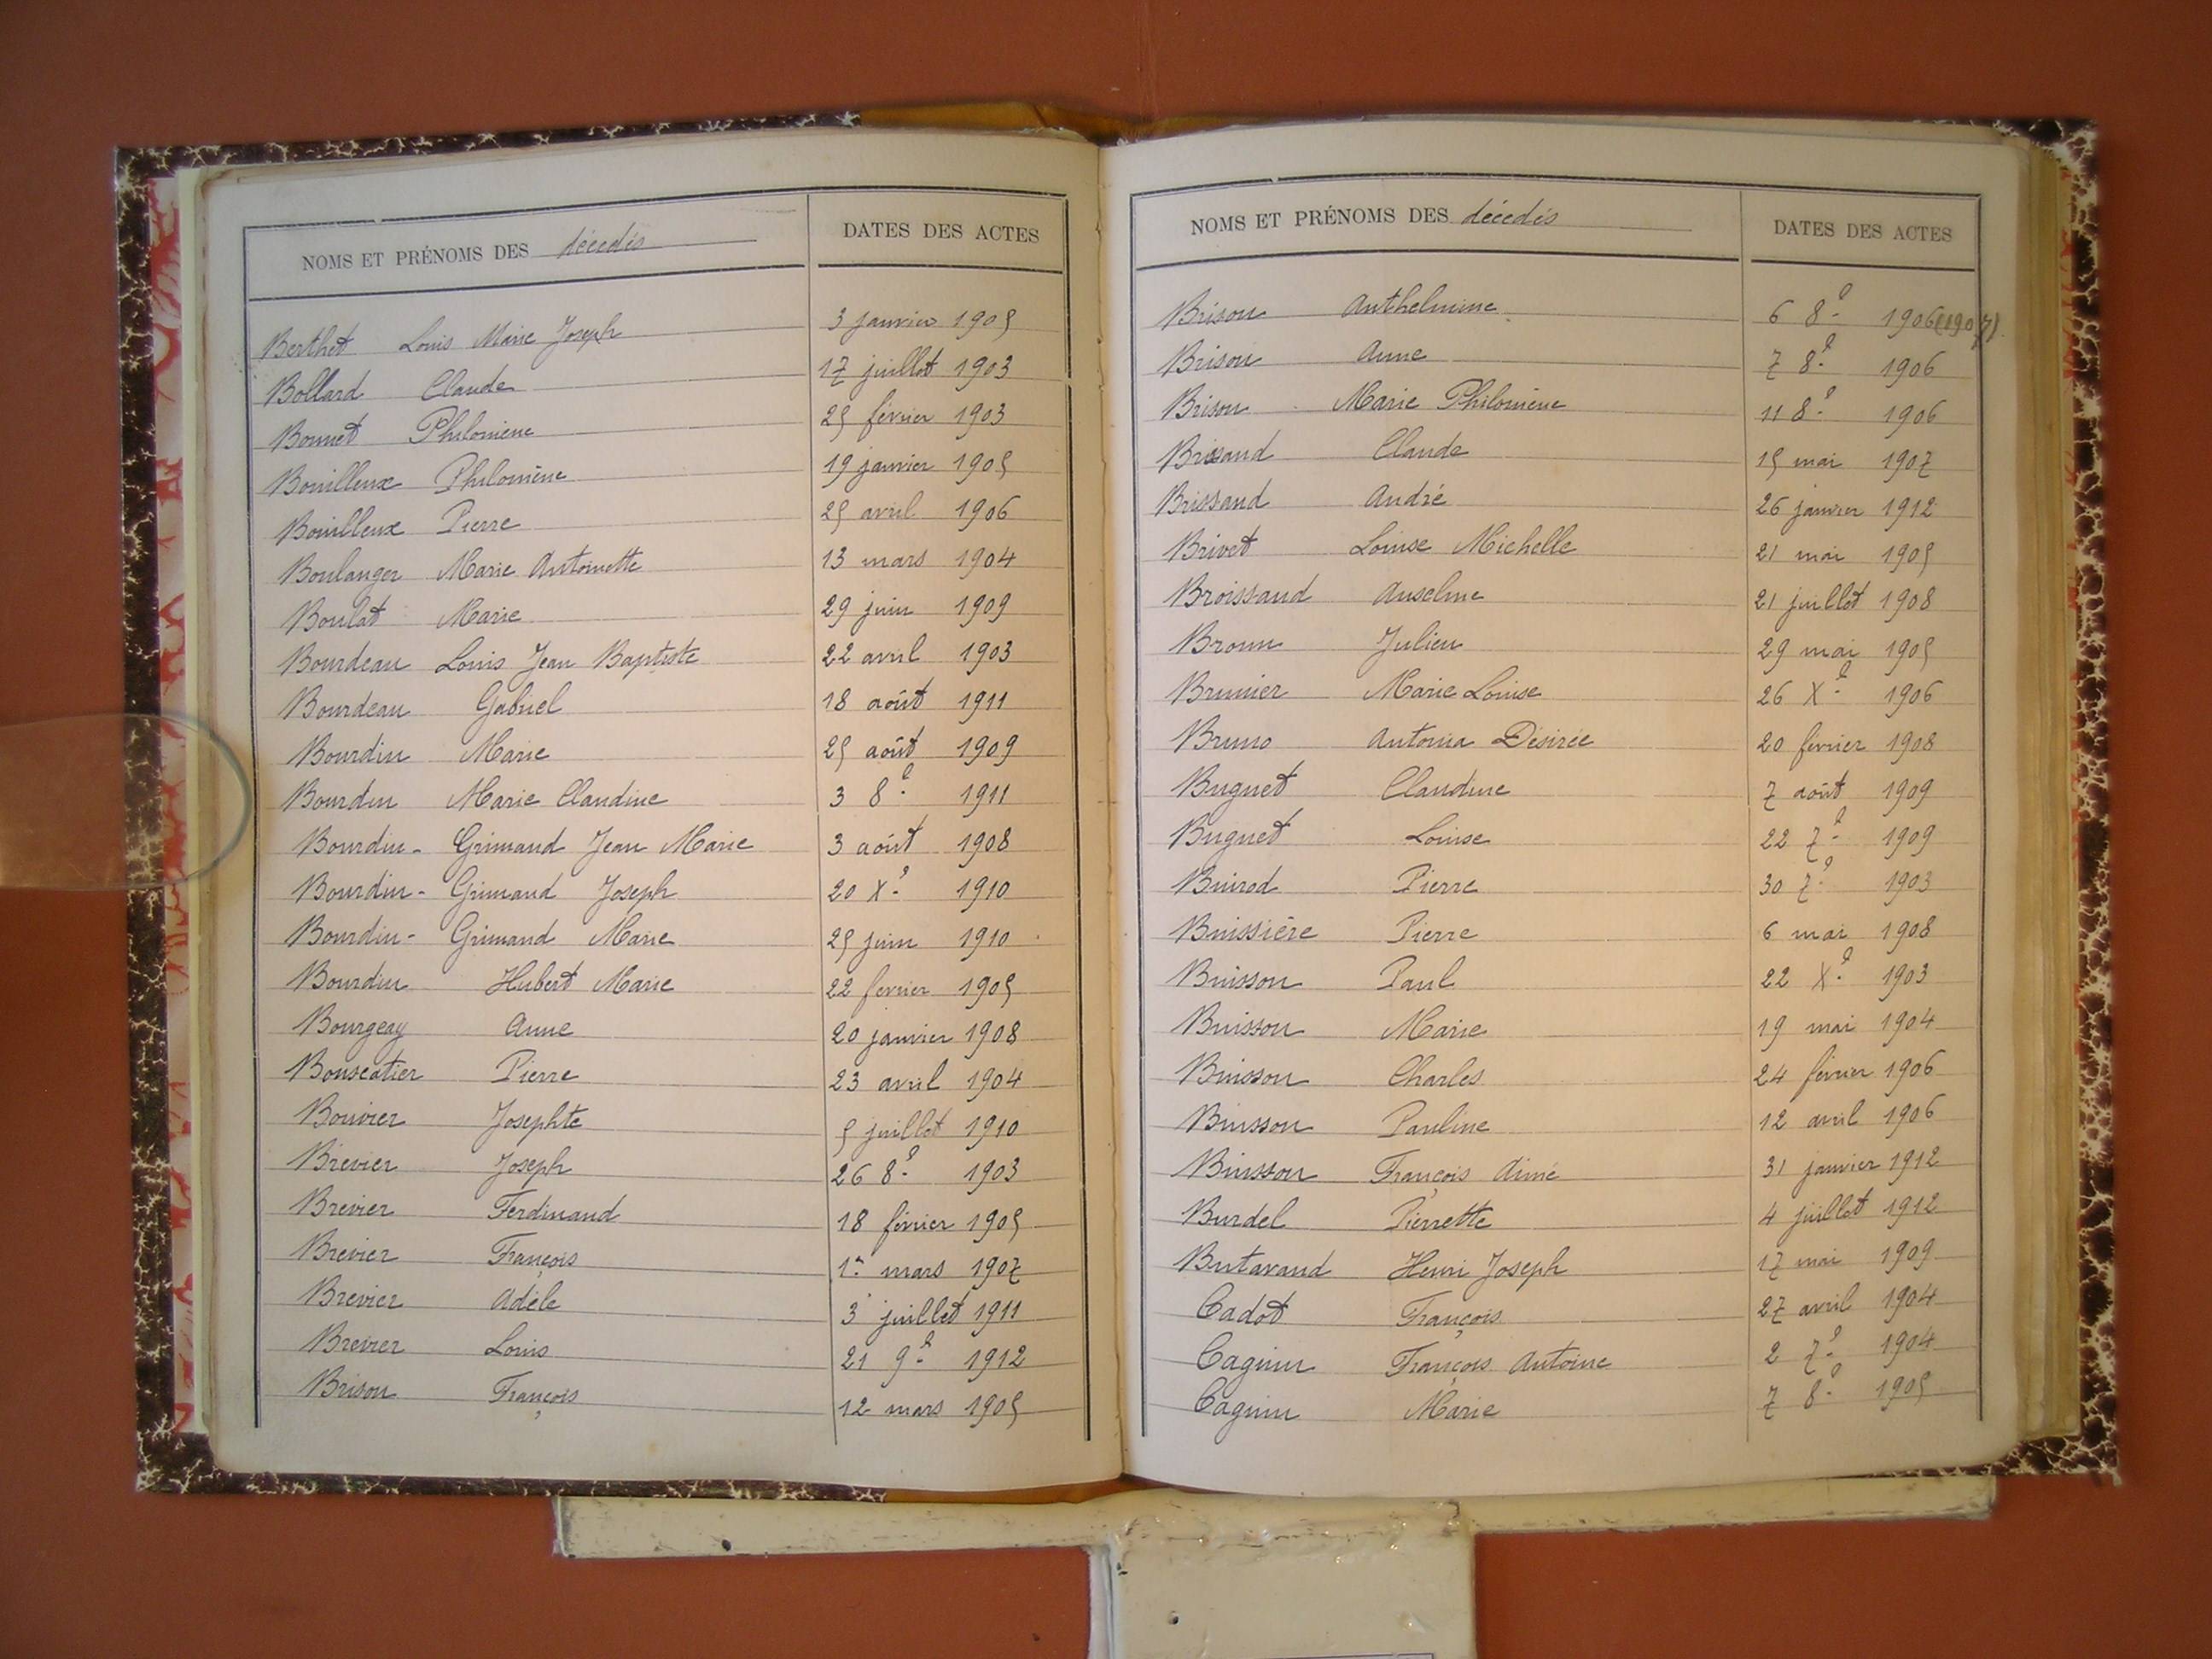 NOMS ET PRÉNOMS DES décedés DATES DES ACTES
Berthet Louis Marie Joseph 3 janvier 1905
Bollard Claude 17 juillet 1903
Bonnet Philomène 25 février 1903
Bouilleux Philomène 19 janvier 1905
Bouilleux Pierre 25 avril 1906
Boulanger Marie Antoinette 13 mars 1904
Boulat Marie 29 juin 1909
Bourdeau Louis Jean Baptiste 22 avril 1903
Bourdeau Gabriel 18 août 1911
Bourdin Marie 25 août 1909
Bourdin Marie Claudine 3 8e 1911
Bourdin-Grimaud Jean Marie 3 août 1908
Bourdin-Grimaud Joseph 20 Xe 1910
Bourdin-Grimaud Marie 25 juin 1910
Bourdin Hubert Marie 22 février 1905
Bourgeay Anne 20 janvier 1908
Bouscatier Pierre 23 avril 1904
Bouvier Josephte 5 juillet 1910
Brevier Joseph 26 8e 1903
Brevier Ferdinand 18 février 1905
Brevier François 1er mars 1907
Brevier Adèle 3 juillet 1911
Brevier Louis 21 9e 1912
Brison François 12 mars 1905
NOMS ET PRÉNOMS DES décedés DATES DES ACTES
Brison Anthelmine 6 8e 1906 (1907)
Brison Anne 7 8e 1906
Brison Marie Philomène 11 8e 1906
Brissaud Claude 15 mai 1907
Brissaud André 26 janvier 1912
Brivet Louise Michelle 21 mai 1905
Broissand Anselme 21 juillet 1908
Broun Julien 29 mai 1905
Brunier Marie Louise 26 Xe 1906
Bruno Antonia Désirée 20 février 1908
Buguet Claudine 7 août 1909
Buguet Louise 22 7e 1909
Buirod Pierre 30 7e 1903
Buissière Pierre 6 mai 1908
Buisson Paul 22 Xe 1903
Buisson Marie 19 mai 1904
Buisson Charles 24 février 1906
Buisson Pauline 12 avril 1906
Buisson François Aimé 31 janvier 1912
Burdel Pierrette 4 juillet 1912
Butavand Henri Joseph 17 mai 1909
Cadot François 27 avril 1904
Cagnin François Antoine 2 7e 1904
Cagnin Marie 7 8e 1905